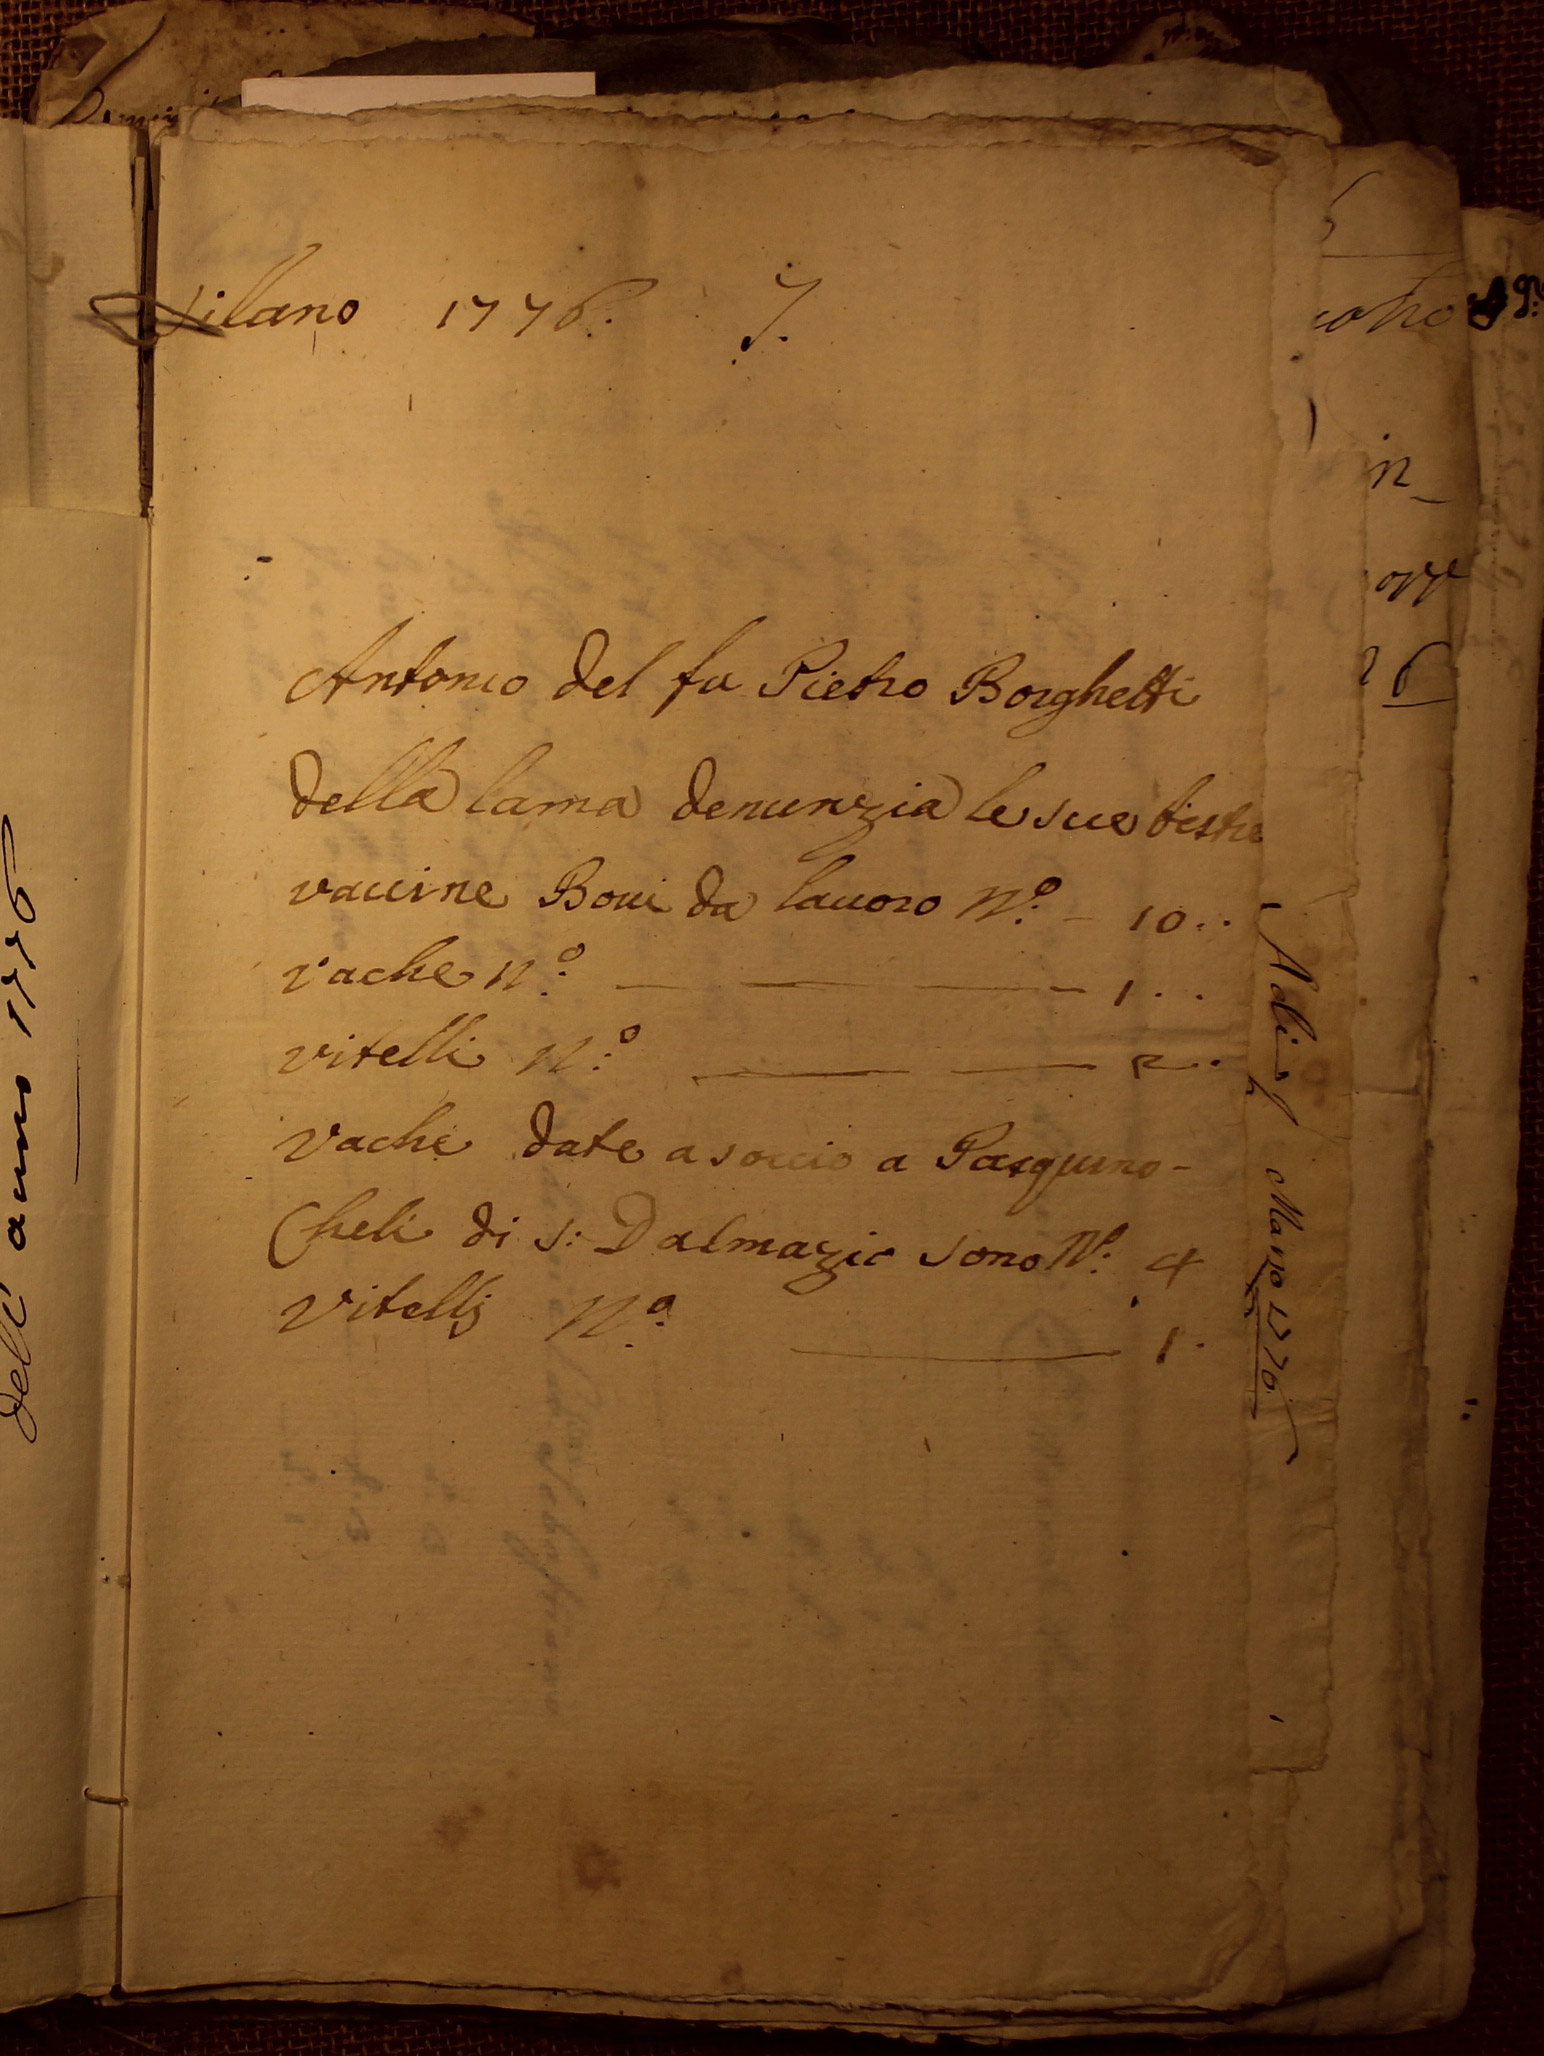 Silano 1776. 7.
Antonio del fu Pietro Borghetti
della lama denunzia le sue bestie
vaccine Boui da lauoro N.o - 10..
vache n.o — — — 1..
vitelli n.o — — 2.
vache date a soccio a Pasquino-
Cheli di s: Dalmazio sono N.o 4
vitellj N.o — 1.
dell' anno 1776
Marzo 1770